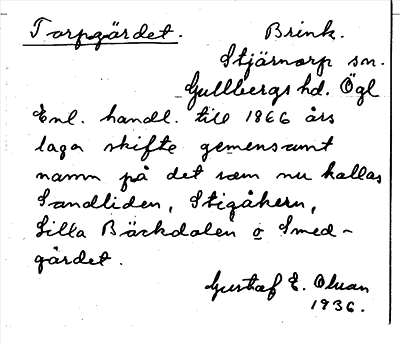 Torpgärdet. Brink.
Stjärnorp sn.
Gullbergs hd. Ögl
Enl. handl. till 1866 års
laga skifte gemensamt
namn på det som nu kallas
Sandliden, Stigåkern,
Lilla Bäckdalen o Smed-
gärdet.
Gustaf E. Olsson
1936.